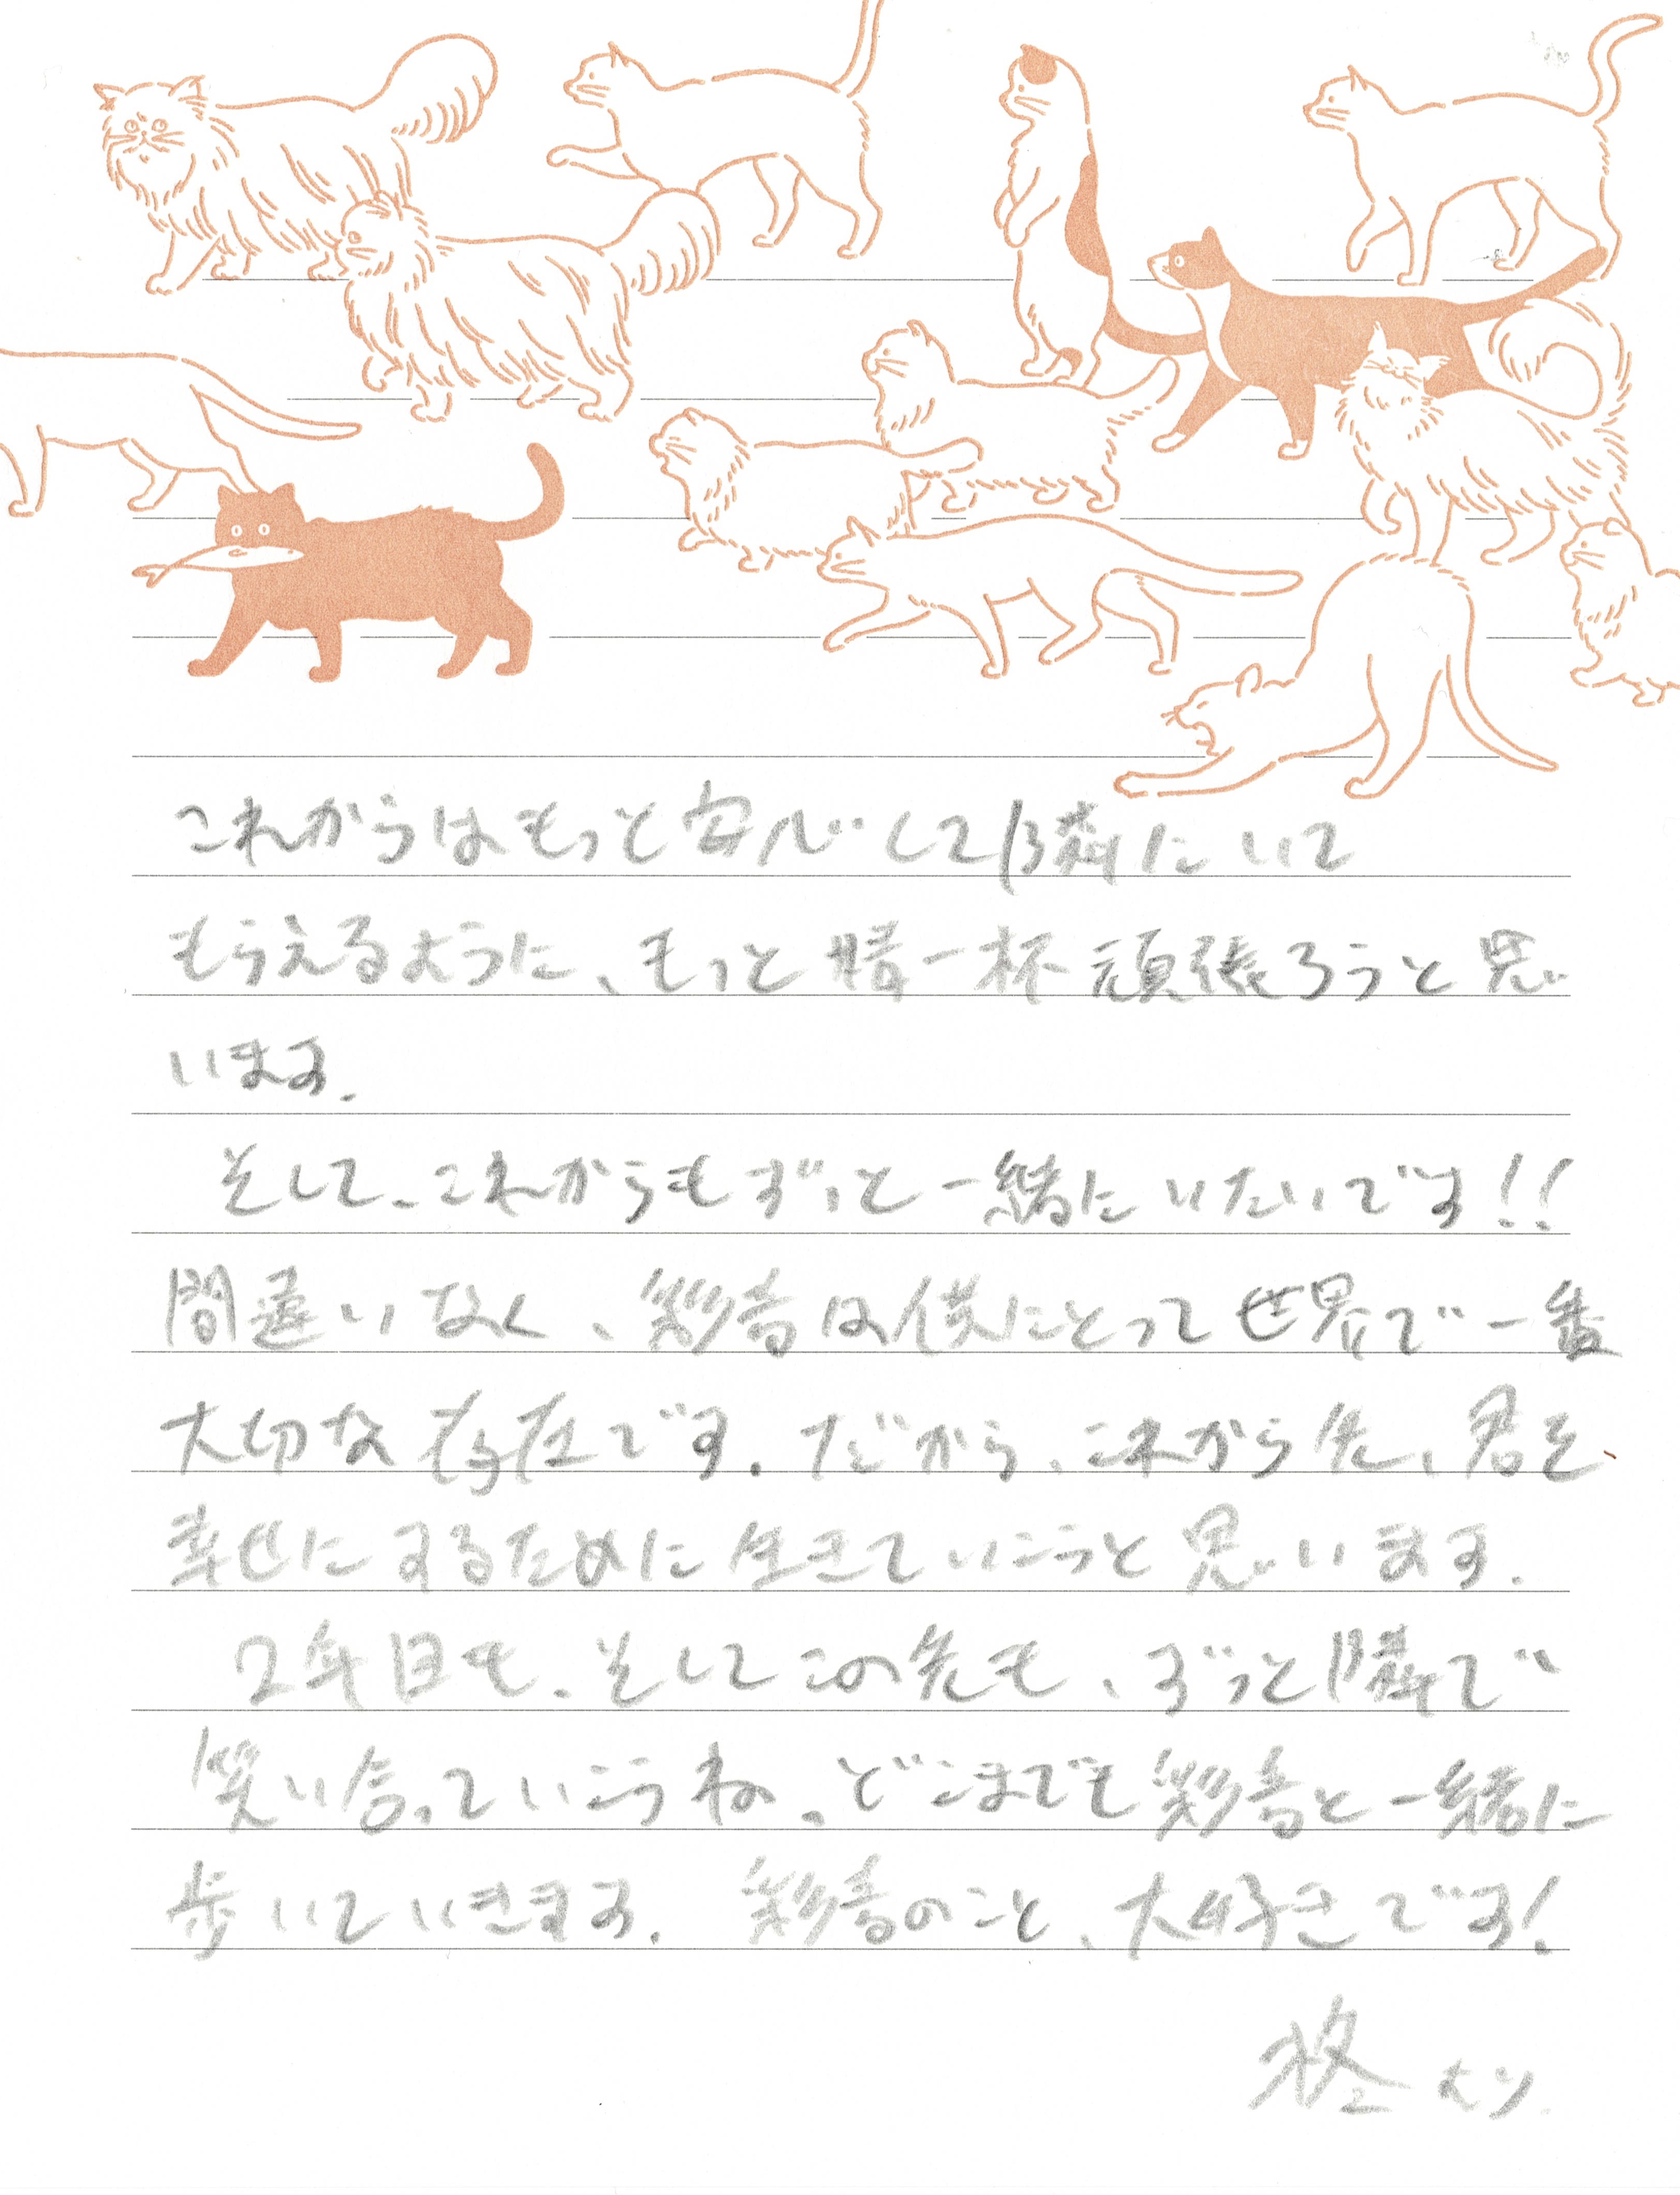 これからはもっと安心して隣にいて
もらえるように、もっと精一杯頑張ろうと思
います.
そして、これからもずっと一緒にいたいです!!
間違いなく、彩音は僕にとって世界で一番
大切な存在です。だから、これから先、君を
幸せにするために生きていこうと思います.
2年目も、そしてこの先も、ずっと隣で
笑い合っていこうね。どこまでも彩音と一緒に
歩いていきます. 彩音のこと、大好きです!
柊より.